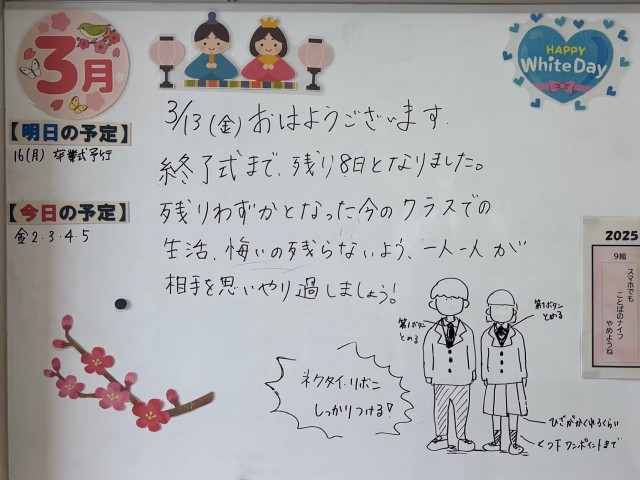 3月
HAPPY
White Day
3/13(金)おはようございます.
【明日の予定】
16(月) 卒業式予行
終了式まで、残り8日となりました。
【今日の予定】
金2.3.4.5
残りわずかとなった今のクラスでの
生活、悔いの残らないよう、一人一人が
相手を思いやり過しましょう!
2025
9組
スマホでも
ことばのナイフ
やめようね
第1ボタン
とめる
第1ボタン
とめる
ネクタイ.リボン
しっかりつける♡
ひざがかくれるくらい
くつ下ワンポイントまで